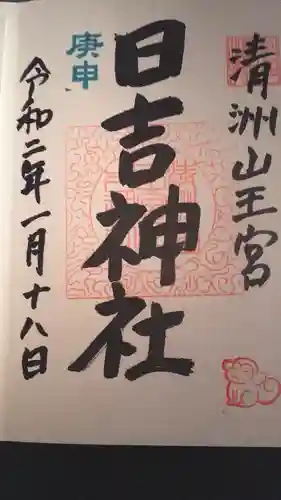 清洲山王宮
庚申
日吉神社
令和二年一月十八日